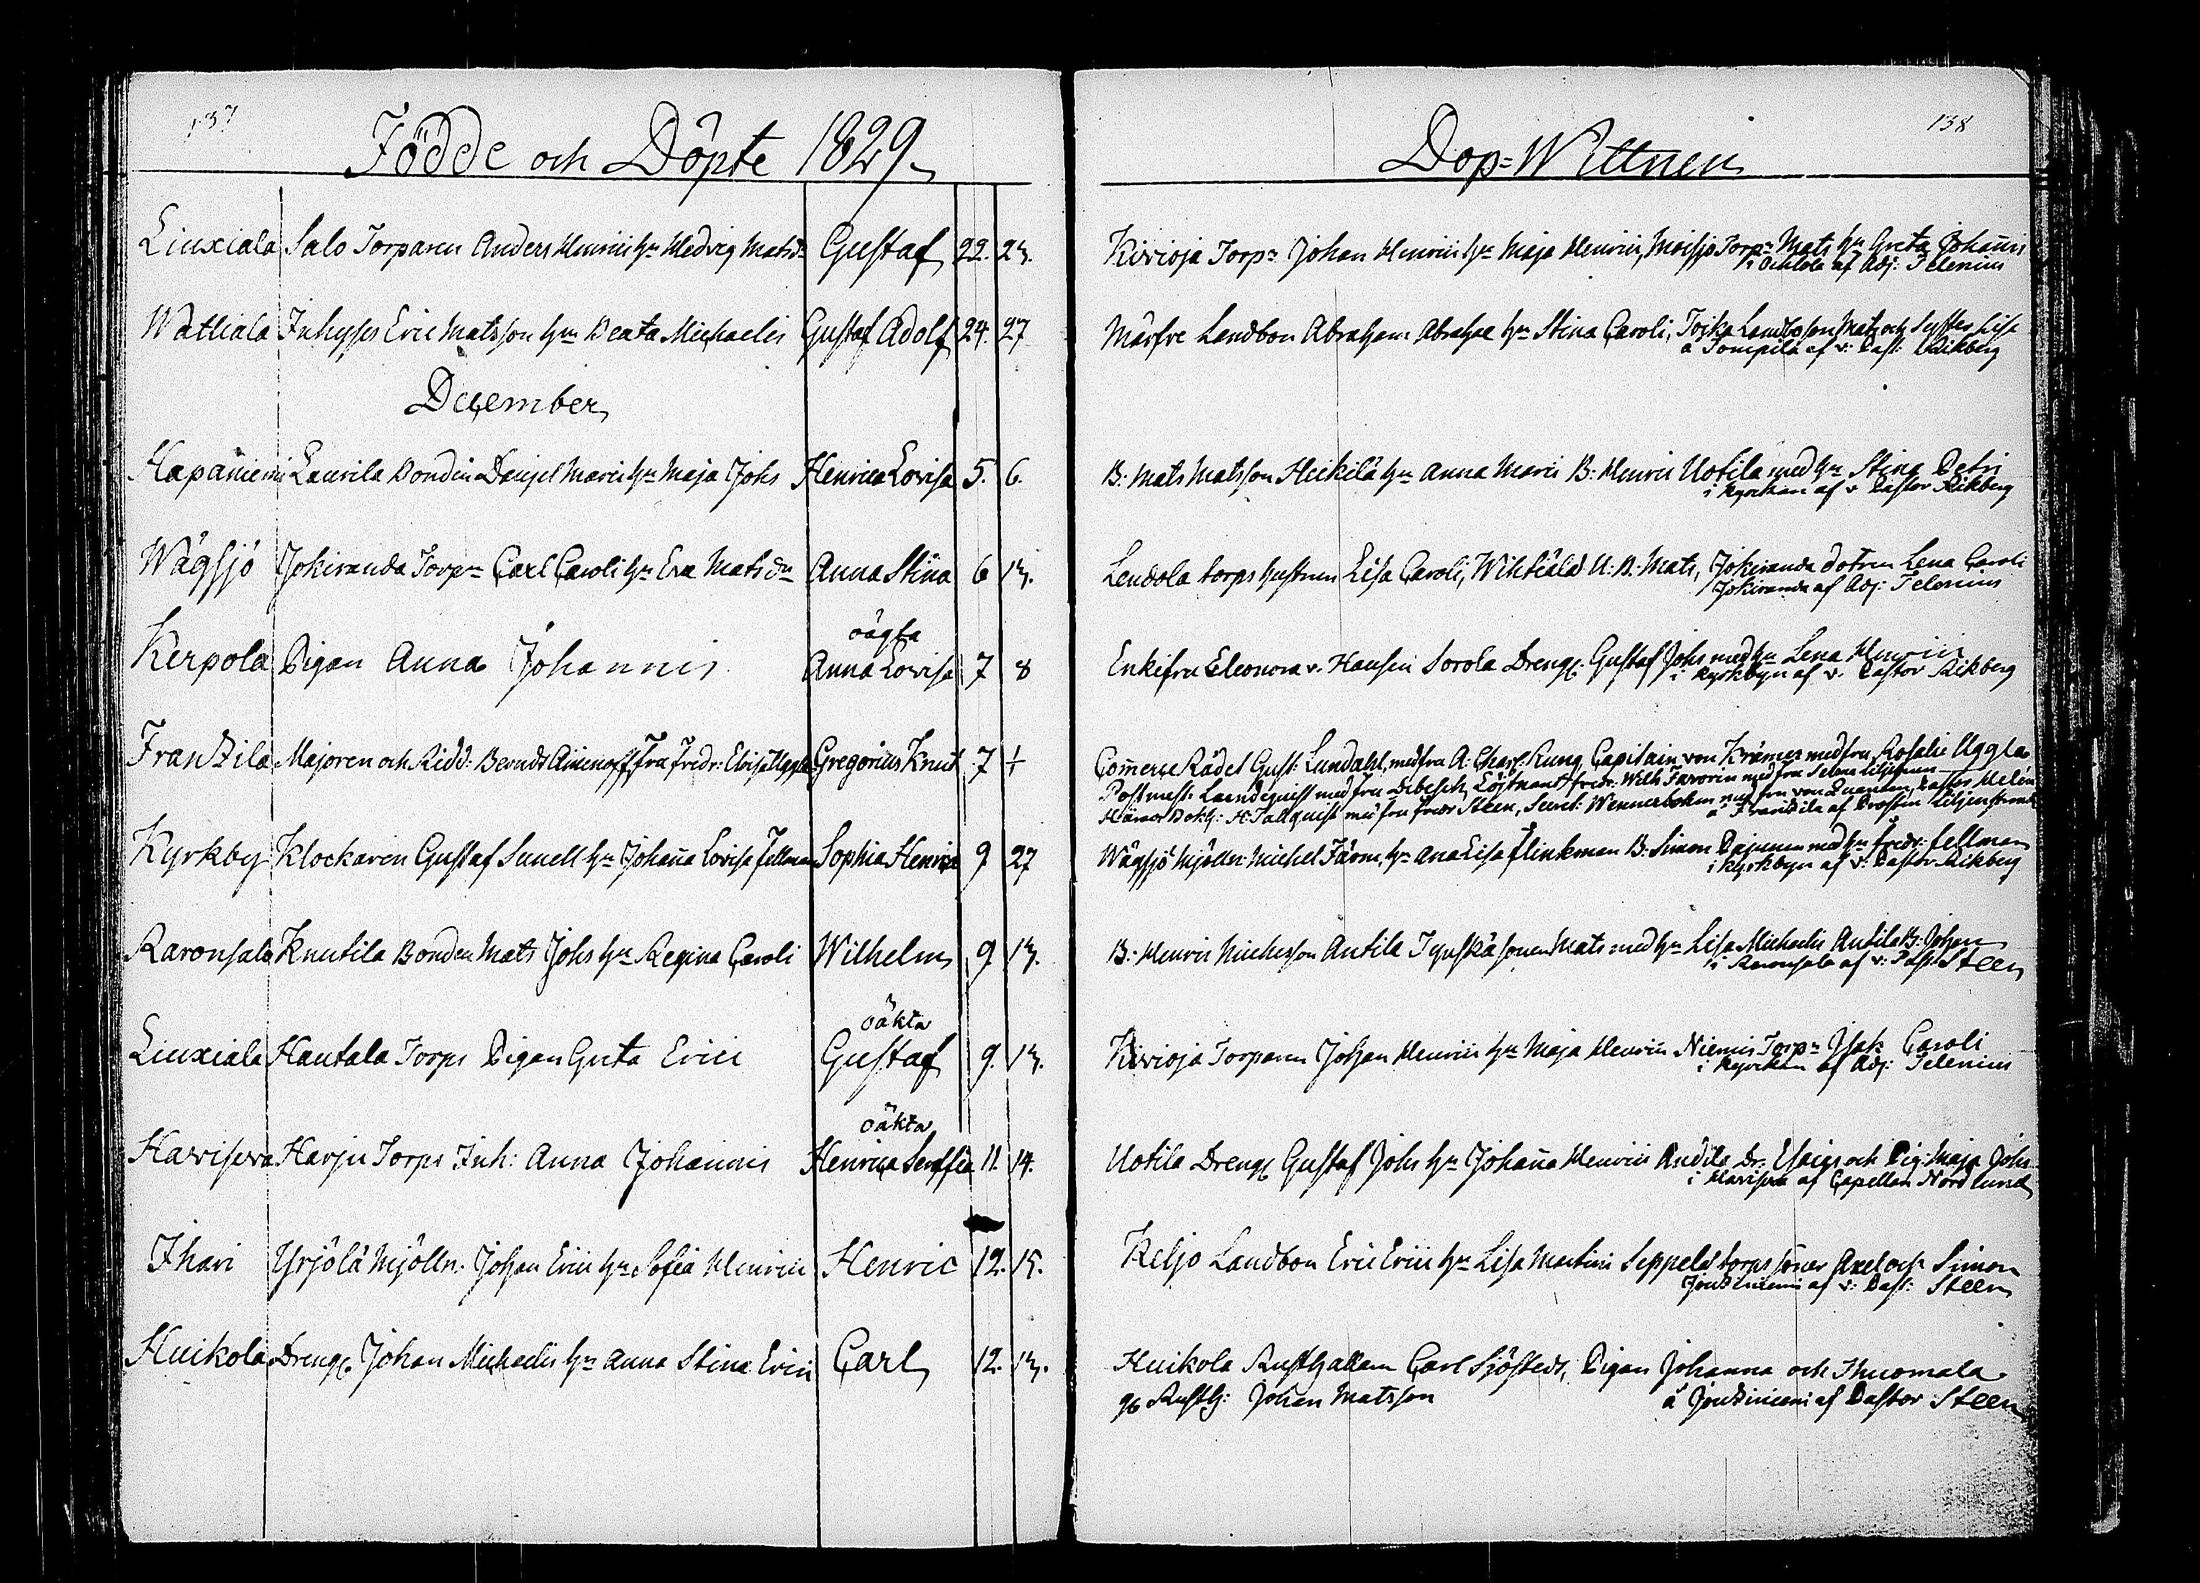 137
Födde och Döpte 1829
Liuxiala Salo Torparen Anders Henrici hu Hedvig Matsdr Gustaf 22. 23.
Wätiala Inhyses Eric Matsson hu Beata Michaelis Gustaf Adolf 24. 27
December
Hapaniemi Laurila Bonden Daniel Marci hu Maja Johs Henrica Lovisa 5. 6.
Wågsjö Jokiranda Torpn Carl Caroli hu Eva Matsdr Anna Stina 6 13.
oägta
Kerpola Pigan Anna Johannis Anna Lovisa 7 8
Frantzila Majoren och Ridd: Berndt Aminoff Fru Fredr: Elvisa Uggla Gregorius Knut 7
Kyrkby Klockaren Gustaf Sunell hu Johaña Lovisa Fellman Sophia Henrica 9 27
Raronsala Knutila Bonden Mats Johs hu Regina Caroli Wilhelm 9 13.
oäkta
Liuxiala Hautala Torps Pigan Greta Erici Gustaf 9. 13.
oäkta
Havisevä Harju Torps Inh: Anna Johannis Henrica Seraffia 11. 14.
Ihari Yrjölä Mjöln: Johan Erici hu Sofia Henrici Henric 12. 15.
Huikola Dreng: Johan Michaelis hu Anna Stina Erici Carl 12. 13.
138
Dop=Wittnen
Kirioja Torpn Johan Henrici hu Maja Henrici, Moisjo Torpn Mats hu Greta Johañis
i Ochtola af Adj: Telenius
Märfve Landbon Abraham Abrahae hu Stina Caroli, Toika Landbosson Mats och Syster Lisa
å Tompila af v: Past: Rikberg
B: Mats Matsson Heikilä hu Anna Marci B: Henric Uotila med hu Stina Petri
i kyrckan af v Pastor Rikberg
Lendola torps hustrun Lisa Caroli, Wihtiälä U: B: Mats, Jokiranda dotren Lena Caroli
Jokiranda af Adj: Telenius
Enkefru Eleonora v. Hausen Sorola Dreng: Gustaf Johs med hu Lena Henrici
i kyrkbyn af v. Pastor Rikberg
Coñerse Rådet Gust: Lundahl, med fru A: Charl: Rung Capitain von Kræmer med fru Rosalie Uggla
Postmest: Laendequist med fru Debesch, Löjtnant Fredr: Wilh: Favorin med fru Selma Liljenun Pastor Helén
Härads Dokt: H: Tallquist med fru Steen, Secret: Wennerbohm med fru von Quanten,
å Frantzila af Prosten Liljenstrand
Wågsjö Mjölln: Michel Färm, hu Ana Lisa Flinkman B: Simon med hu Fredr: Fellman
i kyrkbyn af v: Pastor Rikberg
B: Henric Michelsson Antila sonen Mats med hu Lisa Michaelis Antila B: Johan
i Raronsala af v: Past Steen
Kirioja Torparen Johan Henrici hu Maja Henrici Niemis Torpn Isak Caroli
i kyrckan af Adj: Telenius
Uotila Dreng: Gustaf Johs hu Johaña Henrici Andila Dr: Esaias och Pig: Maja Johs
i Havisevä af Capellan Nordlund
Keljo Landbon Eric Erici hu Lisa Martini Seppälä torps söner Axel och Simon
Jontziniemi af v: Past: Steen
Huikola Rusthållaren Carl Sjöstedt, Pigan Johanna och Huomala
gb Rusth: Johan Matsson
å Jontziniemi af Pastor Steen